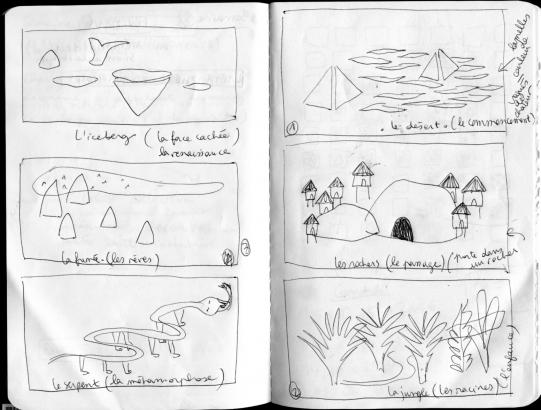 L'iceberg (la face cachée)
la renaissance
la fumée. (les rêves)
2
le serpent (la métamorphose)
lamelles
couleur de
1
. le désert. (le commencement)
les rochers (le passage) (porte dans
un rocher
2
la jungle (les racines)
(l'enfance)